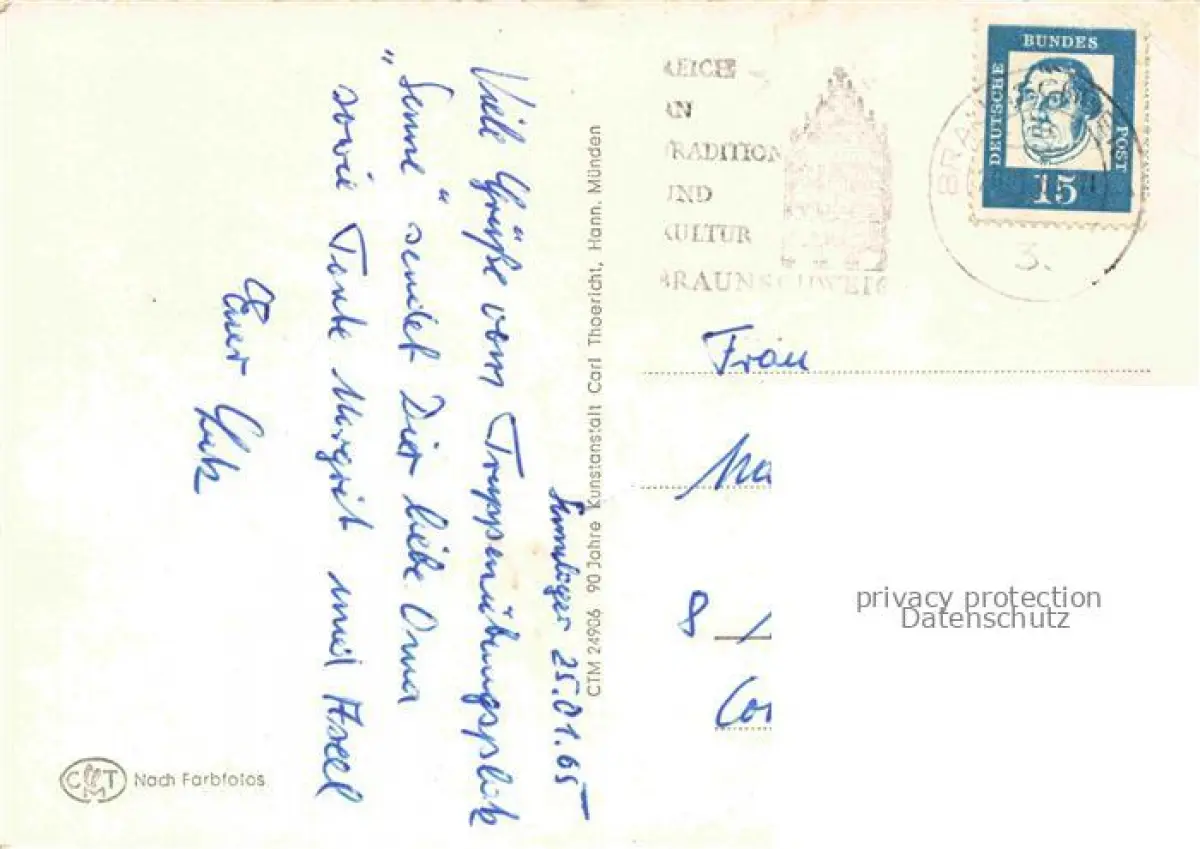 Sennelager 25.01.65
Viele Grüße vom Truppenübungsplatz
„Senne" sendet Dir liebe Oma
sowie Tante Margrit und Axel
Euer Lutz
CTM 24906 90 Jahre Kunstanstalt Carl Thoericht, Hann. Münden
Nach Farbfotos
CMT
REICH
AN
TRADITION
UND
KULTUR
BRAUNSCHWEIG
3.
DEUTSCHE
BUNDES
POST
15
Frau
8
privacy protection
Datenschutz